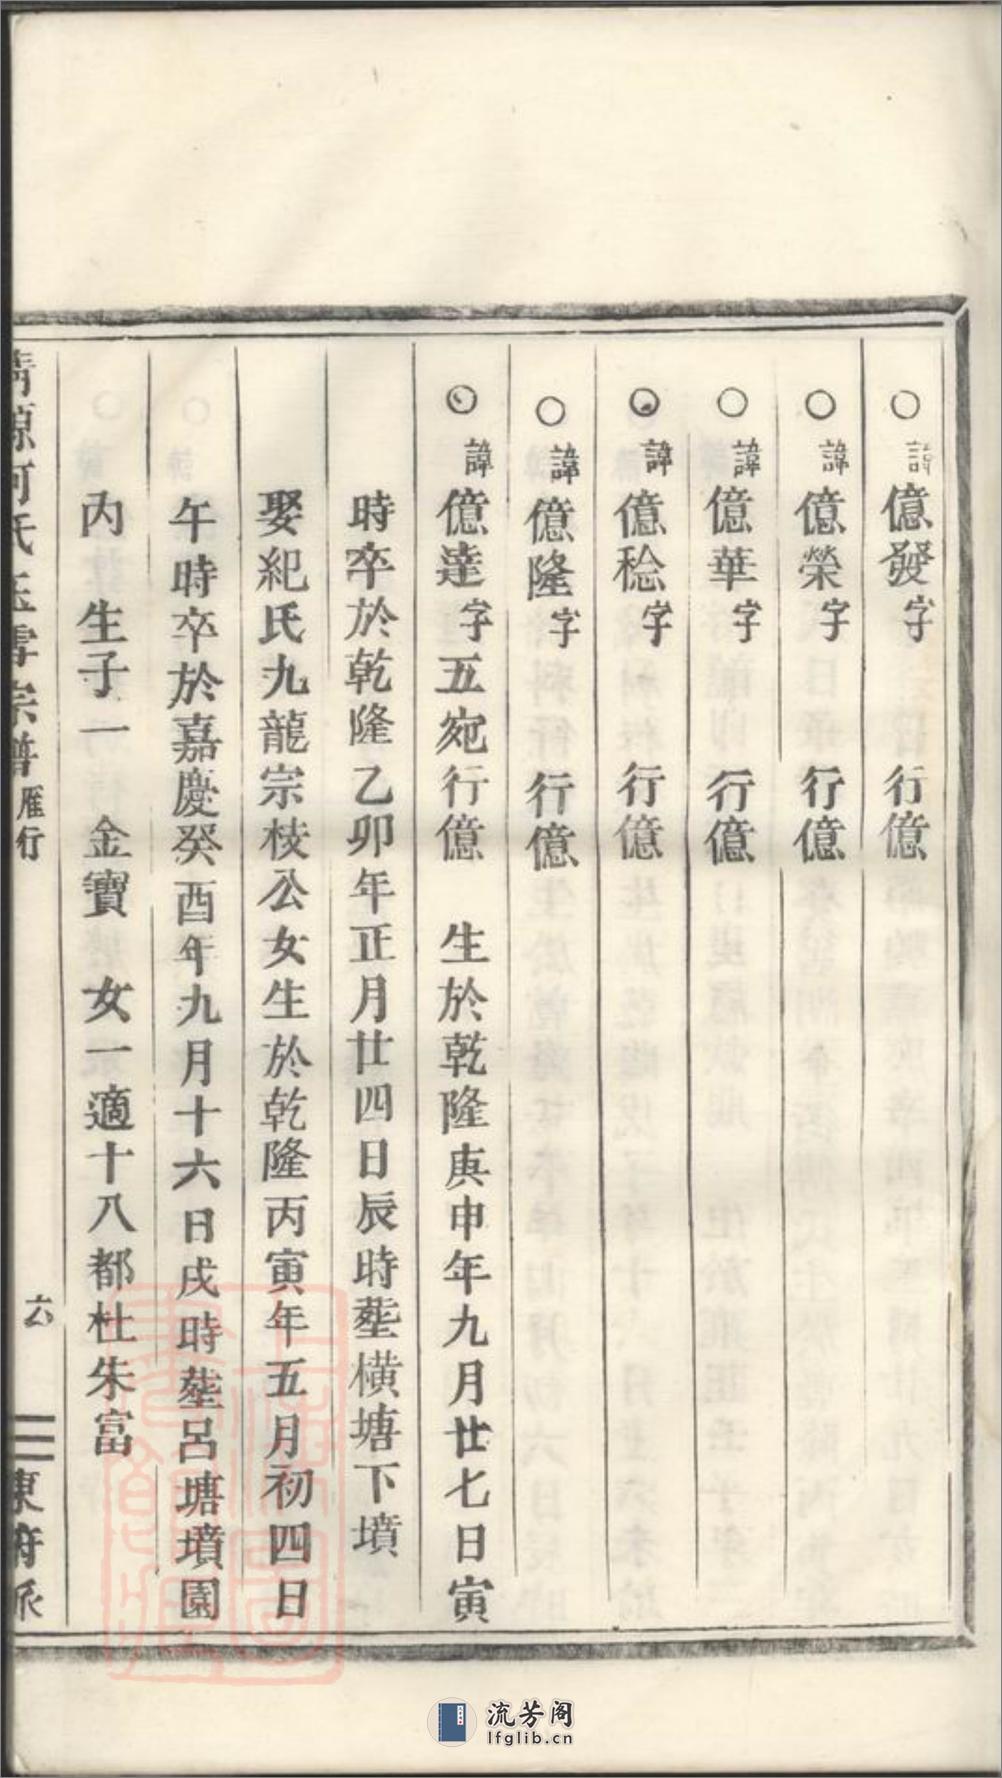 ○諱億發字 行億
○諱億榮字 行億
○諱億華字 行億
○諱億稔字 行億
○諱億隆字 行億
○諱億達字五宛行億 生於乾隆庚申年九月廿七日寅
時卒於乾隆乙卯年正月廿四日辰時塟橫塘下墳
娶紀氏九龍宗枝公女生於乾隆丙寅年五月初四日
午時卒於嘉慶癸酉年九月十六日戌時塟呂塘墳園
內 生子一 金寶 女一適十八都杜朱富
清源何氏玉雪宗譜 雁行 六 東府派
流芳阁
lfglib.cn